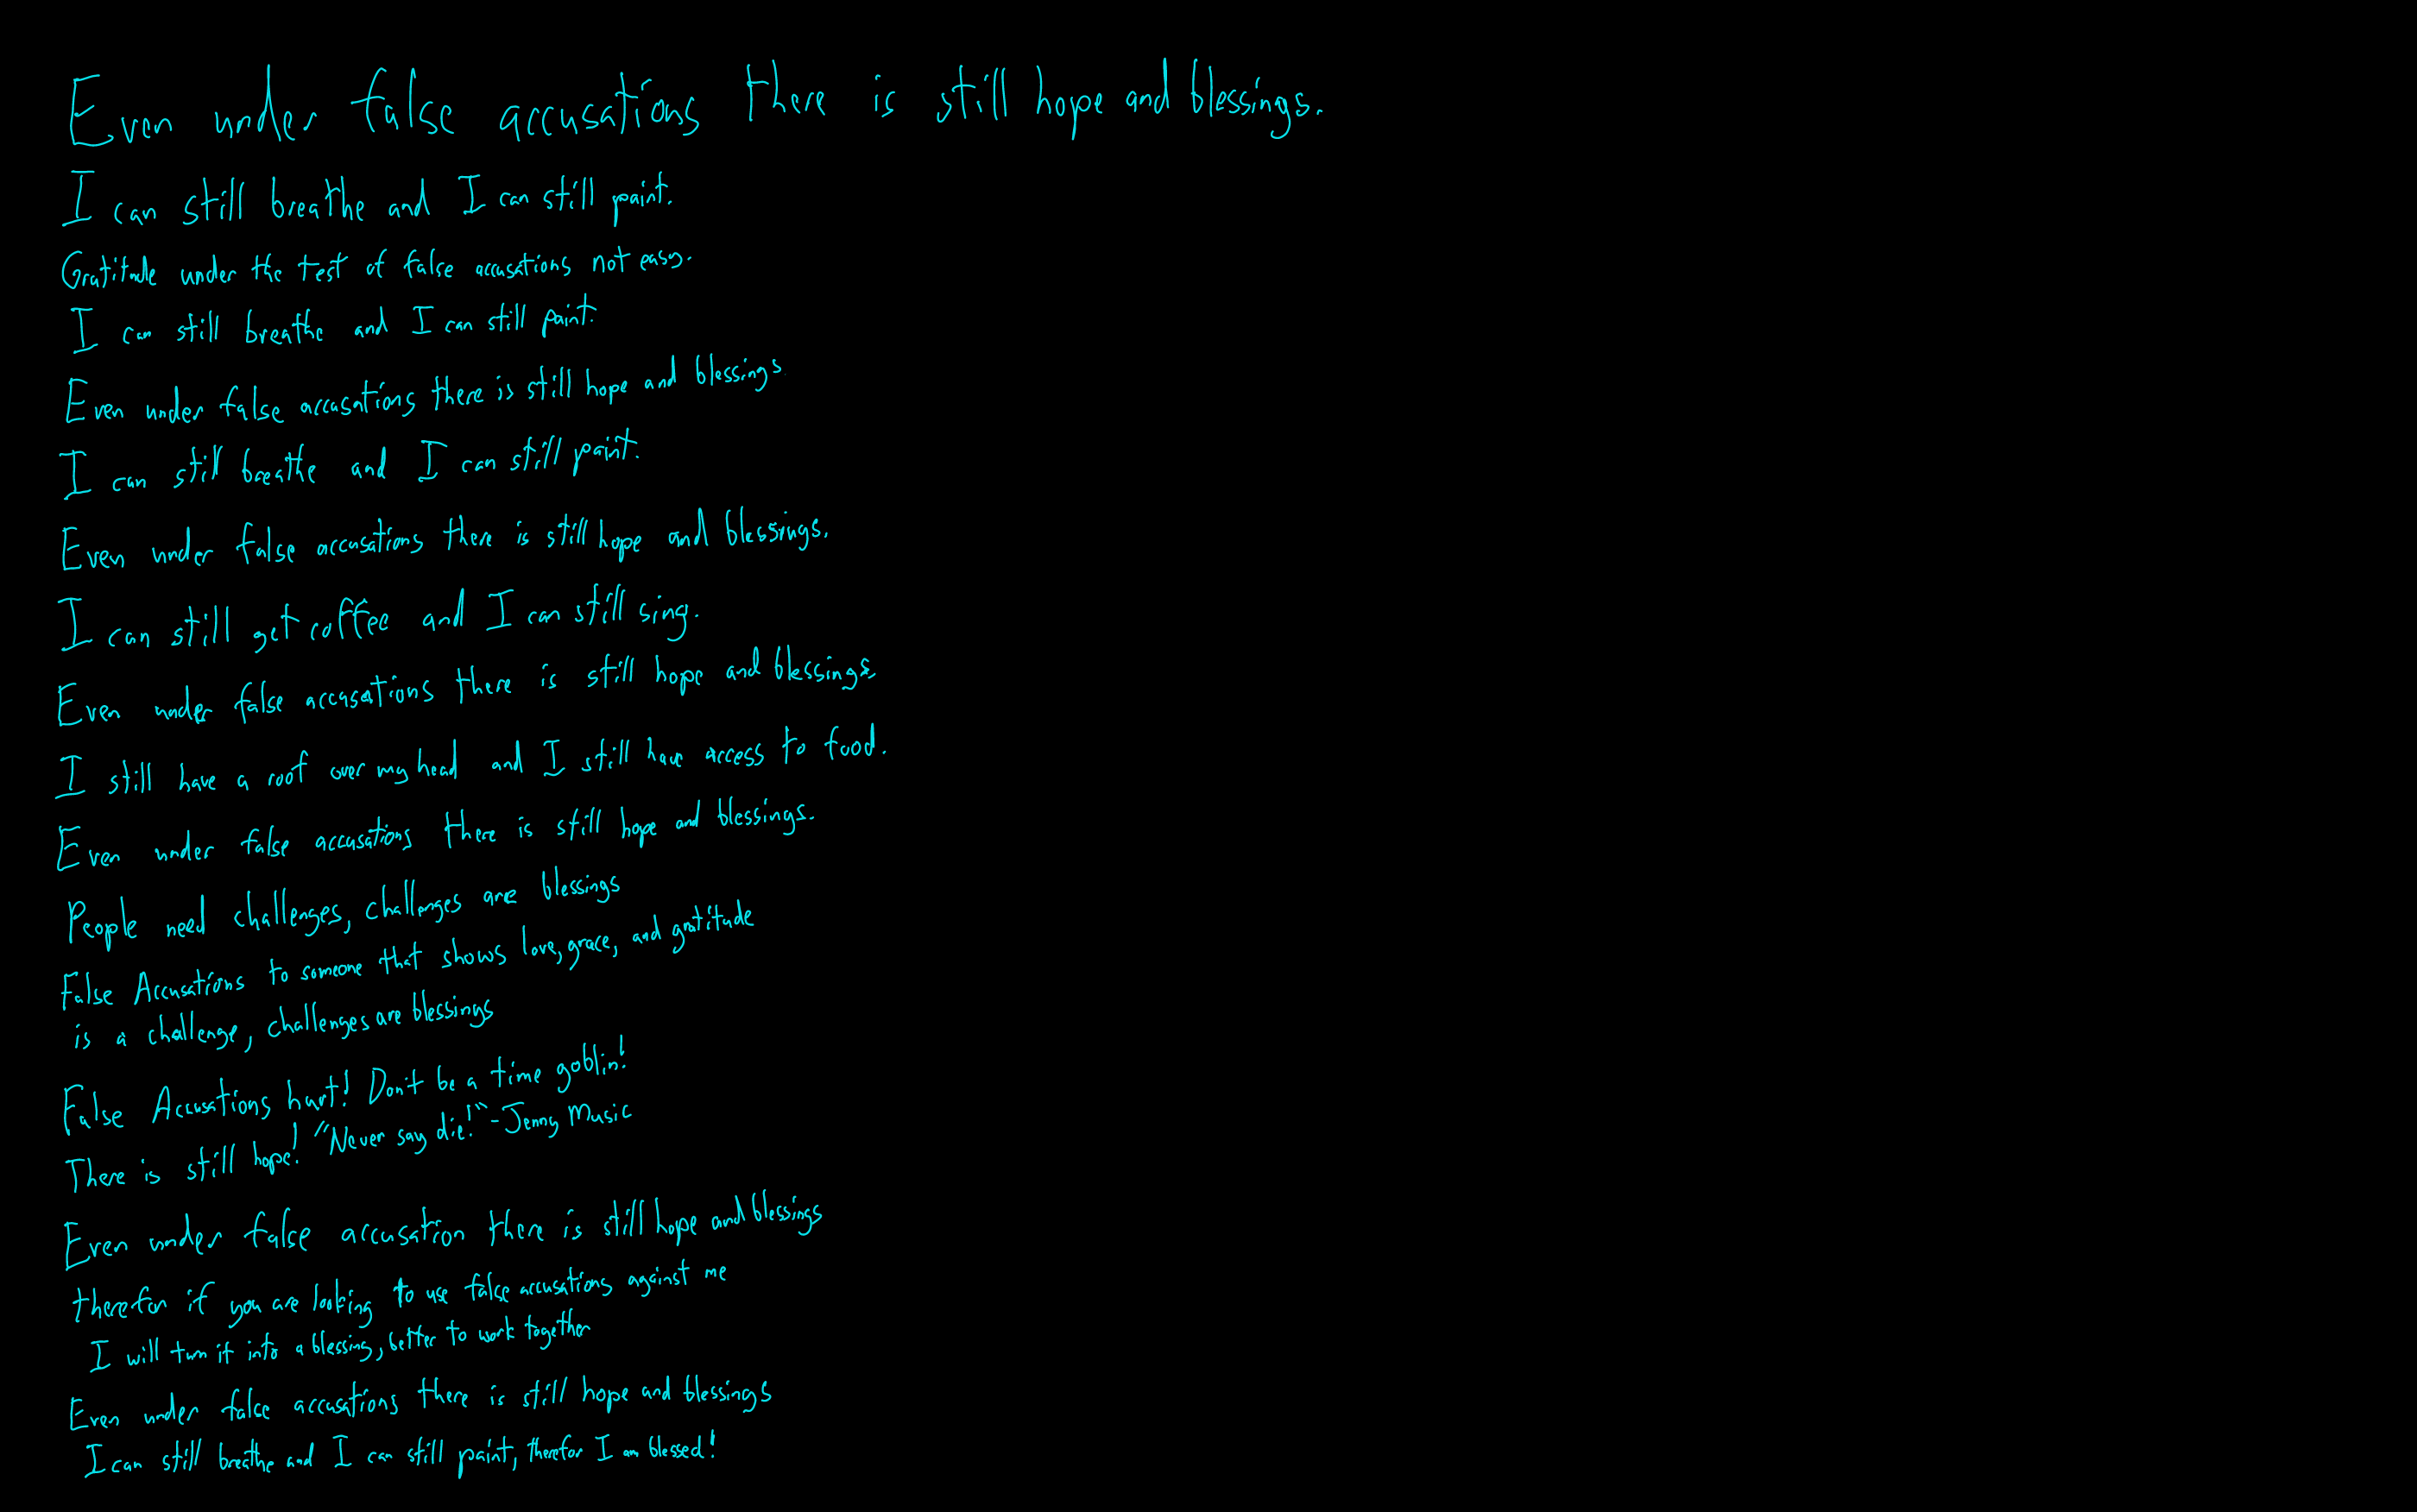 Even under false accusations there is still hope and blessings.
I can still breathe and I can still paint.
Gratitude under the test of false accusations not easy.
I can still breathe and I can still paint.
Even under false accusations there is still hope and blessings.
I can still breathe and I can still paint.
Even under false accusations there is still hope and blessings.
I can still get coffee and I can still sing.
Even under false accusations there is still hope and blessings.
I still have a roof over my head and I still have access to food.
Even under false accusations there is still hope and blessings.
People need challenges, challenges are blessings
False Accusations to someone that shows love, grace, and gratitude
is a challenge, challenges are blessings
False Accusations hurt! Don't be a time goblin!
There is still hope! "Never say die!" - Jenny Music
Even under false accusation there is still hope and blessings
therefor if you are looking to use false accusations against me
I will turn it into a blessing, better to work together
Even under false accusations there is still hope and blessings
I can still breathe and I can still paint, therefor I am blessed!